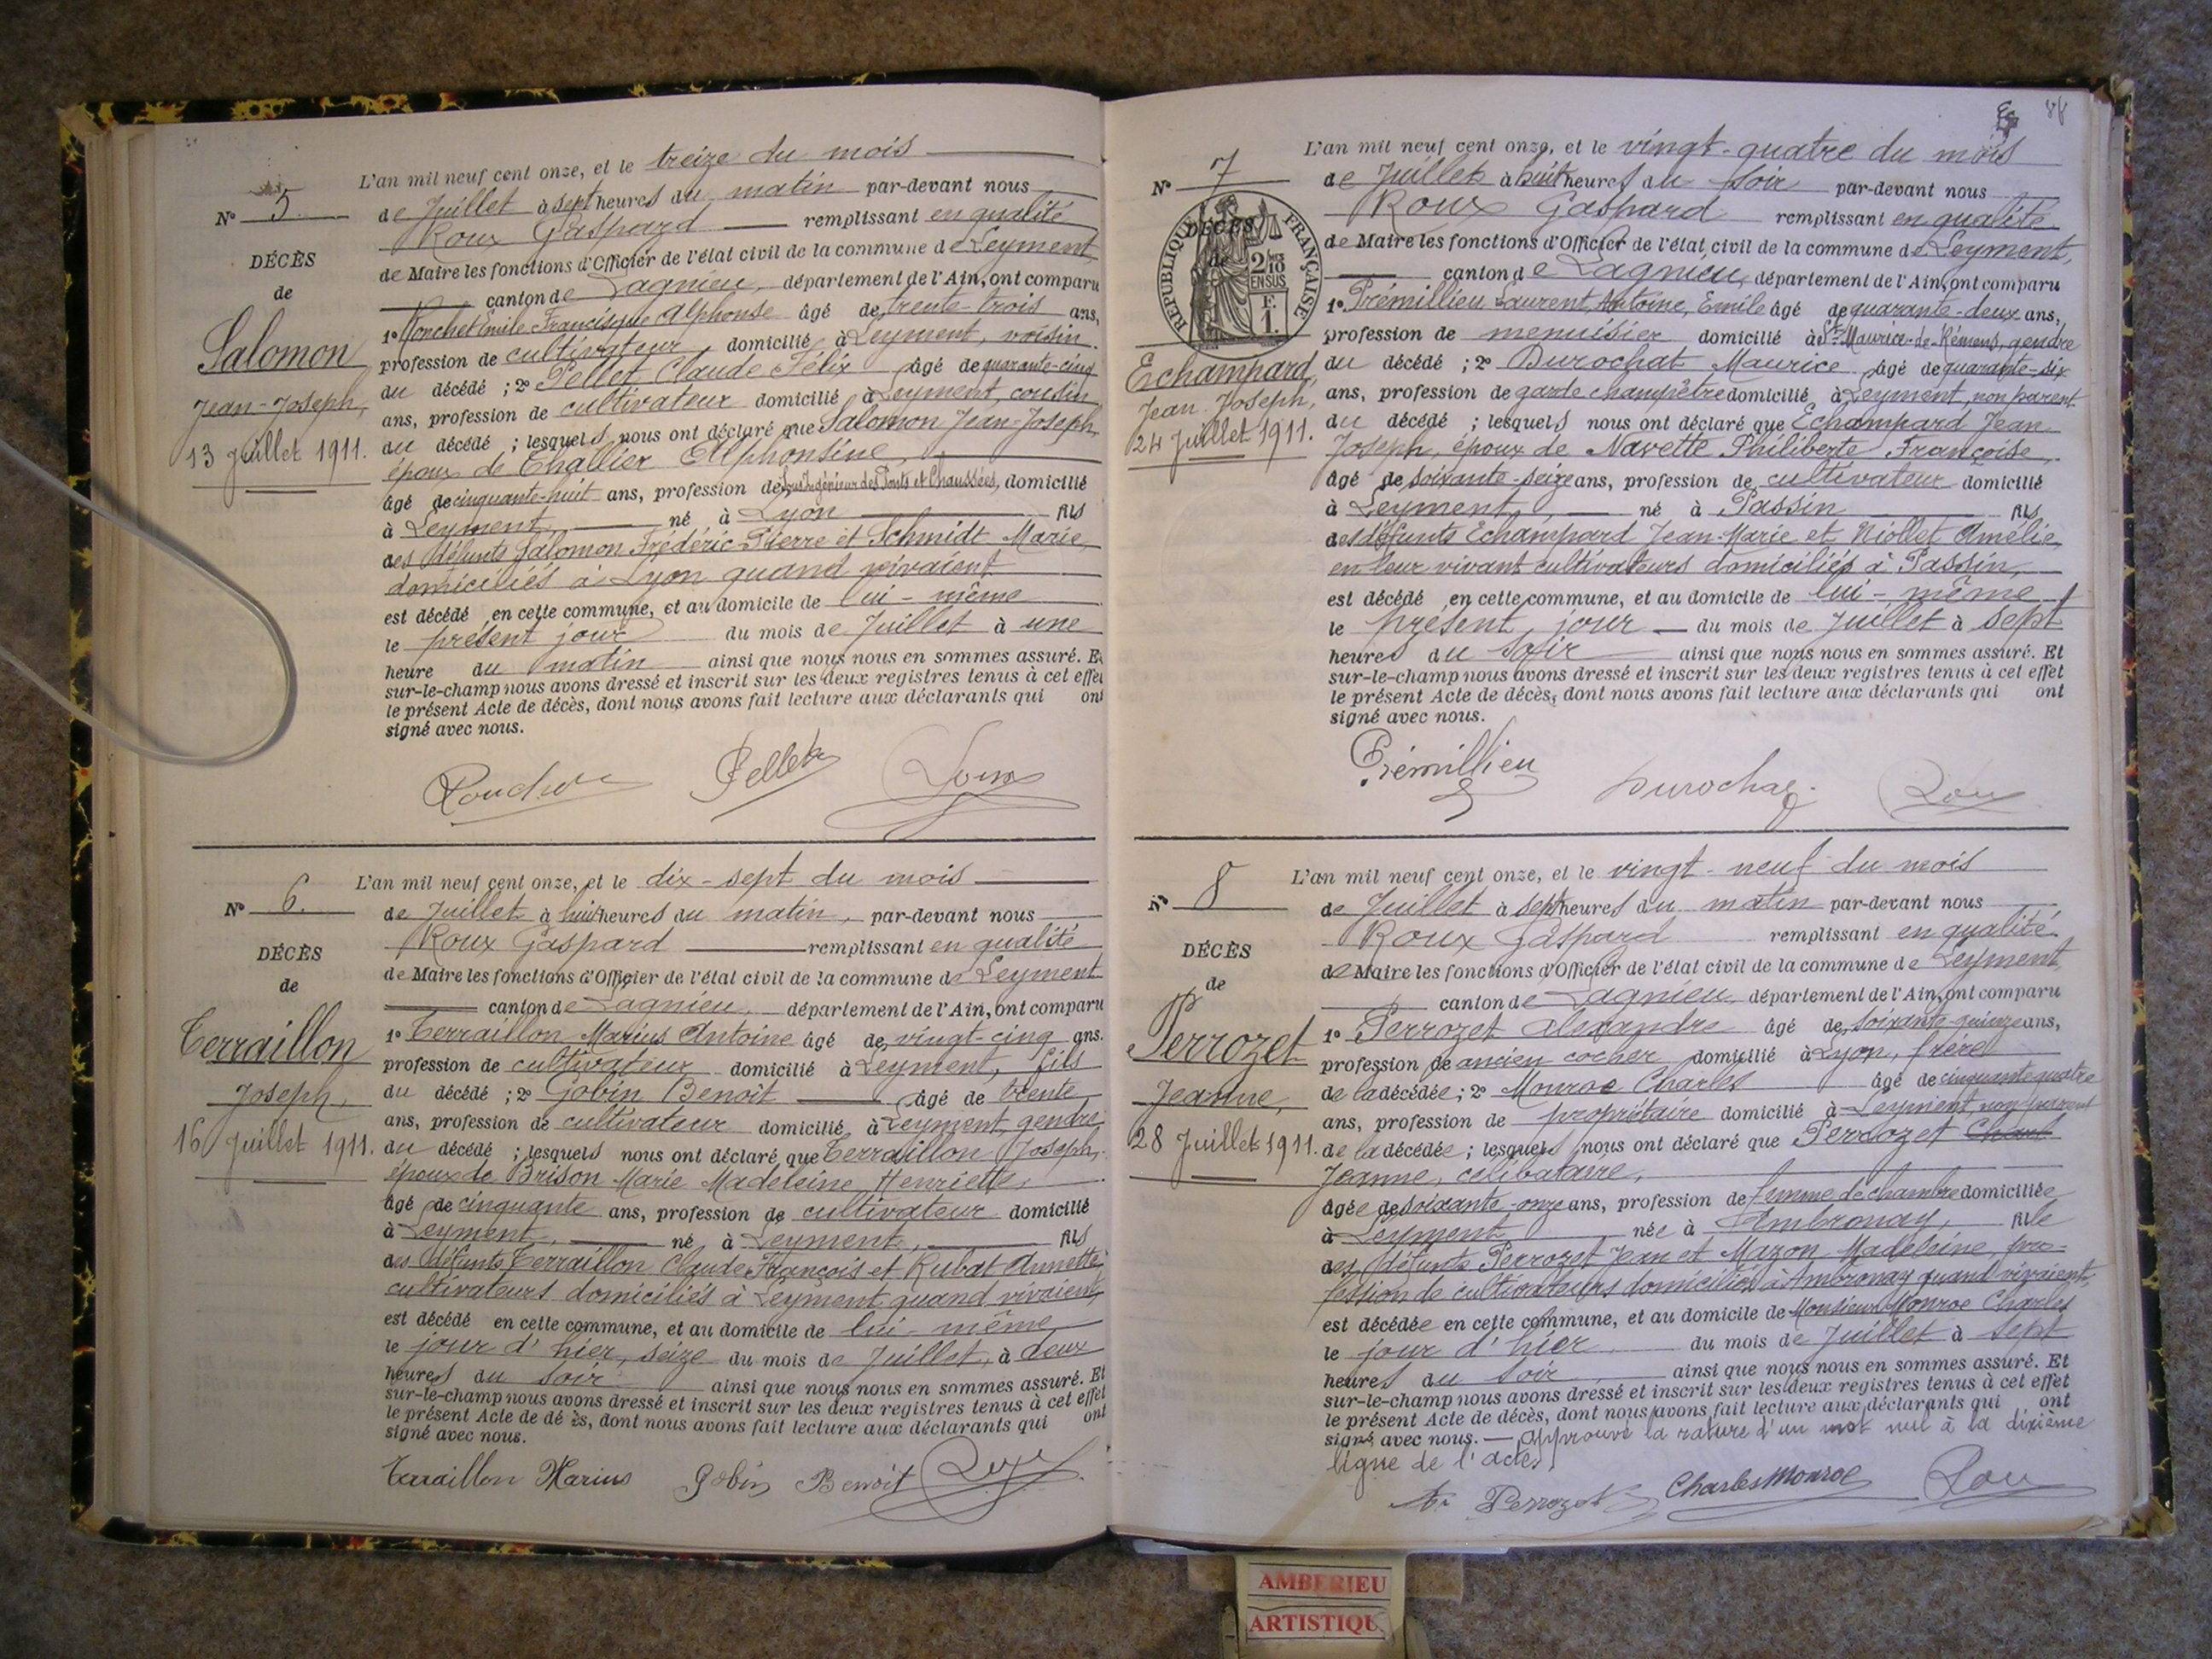 L'an mil neuf cent onze, et le treize du mois
N° 5
de Juillet à sept heures du matin par-devant nous
Roux Gaspard remplissant en qualité
DÉCÈS
de Maire les fonctions d'Officier de l'état civil de la commune de Leyment
de
canton de Lagnieu, département de l'Ain, ont comparu
1° Emile Francisque Alphonse âgé de trente-trois ans,
Salomon
profession de cultivateur, domicilié à Leyment, voisin
Jean-Joseph,
du décédé ; 2° Pellet Claude Félix âgé de quarante-cinq
ans, profession de cultivateur domicilié à Leyment, cousin
13 Juillet 1911.
du décédé ; lesquels nous ont déclaré que Salomon Jean-Joseph,
époux de Challier Alphonsine,
âgé de cinquante-huit ans, profession de Sous Ingénieur des Ponts et Chaussées, domicilié
à Leyment, né à Lyon fils
des défunts Salomon Frédéric Pierre et Schmidt Marie,
domiciliés à Lyon quand vivaient
est décédé en cette commune, et au domicile de lui-même
le présent jour du mois de Juillet à une
heure du matin ainsi que nous nous en sommes assuré. Et
sur-le-champ nous avons dressé et inscrit sur les deux registres tenus à cet effet
le présent Acte de décès, dont nous avons fait lecture aux déclarants qui ont
signé avec nous.
Pellet Roux
L'an mil neuf cent onze, et le dix-sept du mois
N° 6.
de Juillet à huit heures du matin, par-devant nous
Roux Gaspard remplissant en qualité
DÉCÈS
de Maire les fonctions d'Officier de l'état civil de la commune de Leyment
de
canton de Lagnieu, département de l'Ain, ont comparu
1° Terraillon Marius Antoine âgé de vingt-cinq ans.
Terraillon
profession de cultivateur domicilié à Leyment, fils
Joseph,
du décédé ; 2° Gobin Benoît âgé de trente
ans, profession de cultivateur domicilié à Leyment, gendre
16 Juillet 1911.
du décédé ; lesquels nous ont déclaré que Terraillon Joseph,
époux de Brison Marie Madeleine Henriette,
âgé de cinquante ans, profession de cultivateur domicilié
à Leyment, né à Leyment, fils
des défunts Terraillon Claude François et Rubat Annette
cultivateurs domiciliés à Leyment quand vivaient,
est décédé en cette commune, et au domicile de lui-même
le jour d'hier, seize du mois de Juillet, à deux
heures du soir ainsi que nous nous en sommes assuré. Et
sur-le-champ nous avons dressé et inscrit sur les deux registres tenus à cet effet
le présent Acte de dé ès, dont nous avons fait lecture aux déclarants qui ont
signé avec nous.
Terraillon Marius Gobin Benoit Roux
L'an mil neuf cent onze, et le vingt-quatre du mois
N° 7
de Juillet à huit heures du soir par-devant nous
Roux Gaspard remplissant en qualité
DÉCÈS
de
RÉPUBLIQUE FRANÇAISE
2/10 EN SUS
F. 1.
de Maire les fonctions d'Officier de l'état civil de la commune de Leyment,
canton de Lagnieu, département de l'Ain, ont comparu
1° Prémillieu Laurent, Antoine, Emile âgé de quarante-deux ans,
profession de menuisier domicilié à St Maurice-de-Rémens, gendre
Echampard,
du décédé ; 2° Durochat Maurice âgé de quarante-six
Jean Joseph,
ans, profession de garde champêtre domicilié à Leyment, non parent
24 Juillet 1911.
du décédé ; lesquels nous ont déclaré que Echampard Jean
Joseph, époux de Navette Philiberte Françoise,
âgé de soixante-seize ans, profession de cultivateur domicilié
à Leyment, né à Passin fils
des défunts Echampard Jean-Marie et Niollet Amélie,
en leur vivant cultivateurs domiciliés à Passin,
est décédé en cette commune, et au domicile de lui-même
le présent jour du mois de Juillet à sept
heures du soir ainsi que nous nous en sommes assuré. Et
sur-le-champ nous avons dressé et inscrit sur les deux registres tenus à cet effet
le présent Acte de décès, dont nous avons fait lecture aux déclarants qui ont
signé avec nous.
Prémillieu Durochat Roux
L'an mil neuf cent onze, et le vingt-neuf du mois
N° 8
de Juillet à sept heures du matin par-devant nous
Roux Gaspard remplissant en qualité
DÉCÈS
de Maire les fonctions d'Officier de l'état civil de la commune de Leyment
de
canton de Lagnieu, département de l'Ain, ont comparu
1° Perrozet Alexandre âgé de soixante-quinze ans,
Perrozet
profession de ancien cocher domicilié à Lyon, frère
Jeanne,
de la décédée ; 2° Monroe Charles âgé de cinquante quatre
ans, profession de propriétaire domicilié à Leyment, non parent
28 Juillet 1911.
de la décédée ; lesquels nous ont déclaré que Perrozet Charl
Jeanne, célibataire,
âgée de soixante-onze ans, profession de femme de chambre domiciliée
à Leyment née à Ambronay, fille
des défunts Perrozet Jean et Mazon Madeleine, pro-
fession de cultivateurs domiciliés à Ambronay quand vivaient,
est décédée en cette commune, et au domicile de Monsieur Monroe Charles
le jour d'hier du mois de Juillet à sept
heures du soir, ainsi que nous nous en sommes assuré. Et
sur-le-champ nous avons dressé et inscrit sur les deux registres tenus à cet effet
le présent Acte de décès, dont nous avons fait lecture aux déclarants qui ont
signé avec nous. — Approuvé la rature d'un mot nul à la dixième
ligne de l'acte.
Perrozet Charles Monroe Roux
AMBERIEU
ARTISTIQU